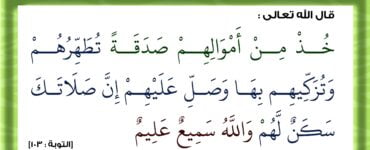 قال الله تعالى :
خُذْ مِنْ أَمْوَالِهِمْ صَدَقَةً تُطَهِّرُهُمْ
وَتُزَكِّيهِم بِهَا وَصَلِّ عَلَيْهِمْ إِنَّ صَلَاتَكَ
سَكَنٌ لَّهُمْ وَاللَّهُ سَمِيعٌ عَلِيمٌ
[التوبة : ١٠٣]